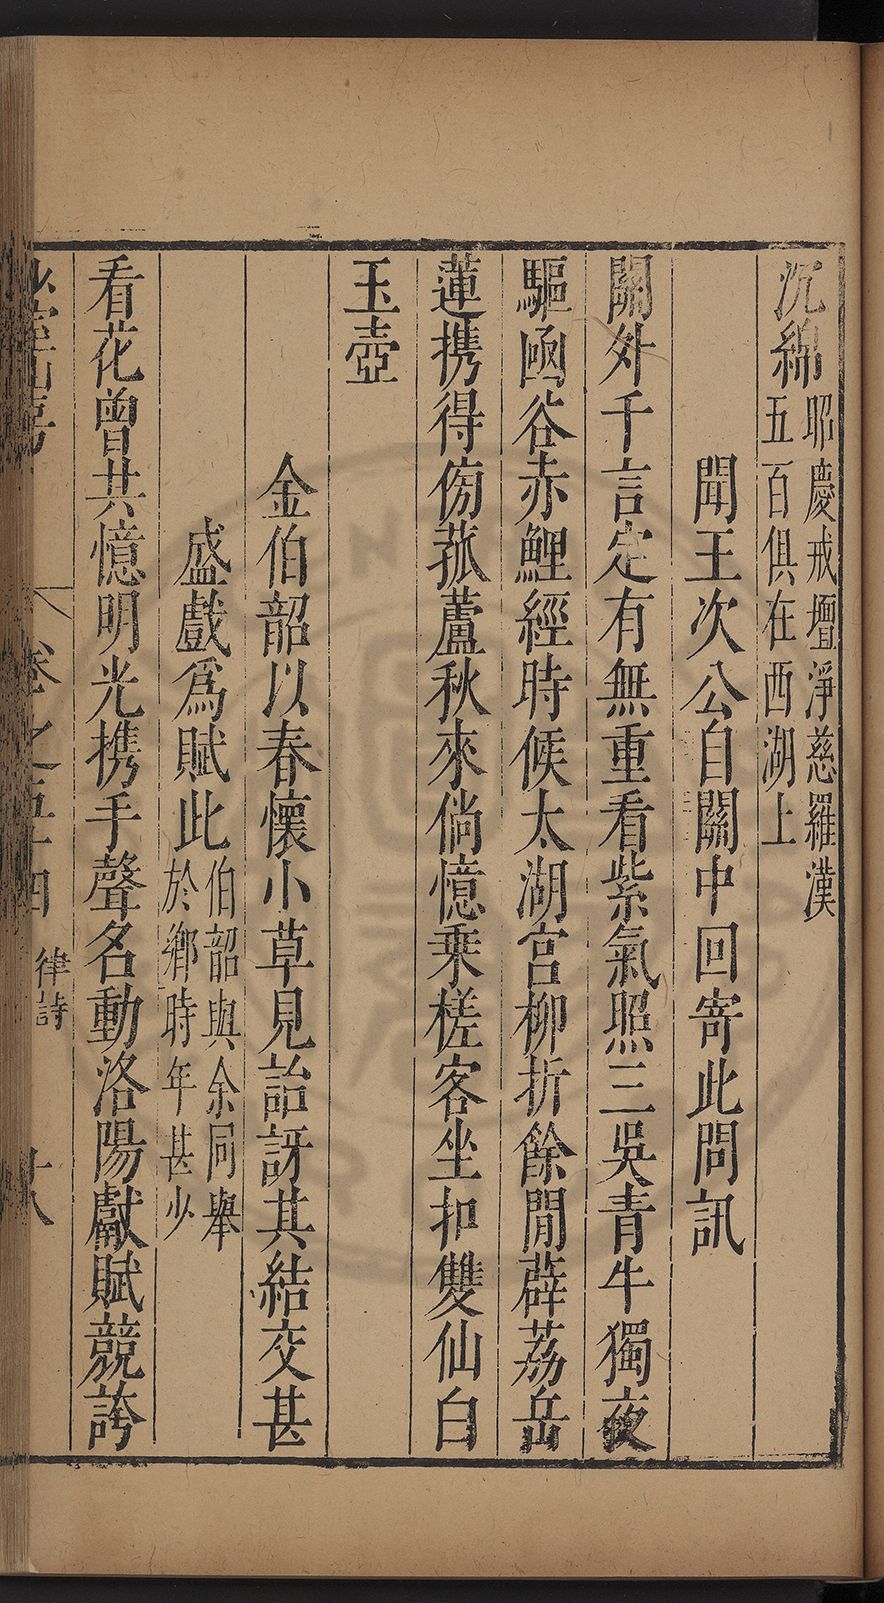 沉綿昭慶戒壇淨慈羅漢
五百俱在西湖上
聞王次公自關中回寄此問訊
關外千言定有無重看紫氣照三吳青牛獨夜
驅凾谷赤鯉經時候太湖宮柳折餘閒薜荔岳
蓮携得傍菰蘆秋來倘憶乗槎客坐扣雙仙白
玉壺
金伯韶以春懷小草見詒訝其結交甚
盛戲爲賦此伯韶與余同舉
於鄉時年甚少
看花曾共憶明光携手聲名動洛陽獻賦競誇
卷之五十四
律詩
十八